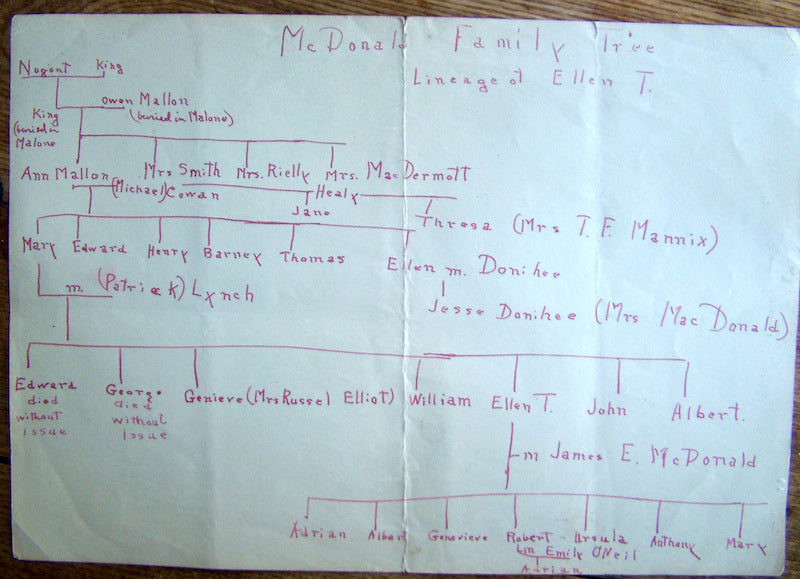 McDonald Family Tree
Lineage of Ellen T.
Nugent King
Owen Mallon
(buried in Malone)
King
(buried in
Malone
Ann Mallon Mrs Smith Mrs. Rielly Mrs. MacDermott
(Michael) Cowan Healy
Jane
Thresa (Mrs T. F. Mannix)
Mary Edward Henry Barney Thomas Ellen m. Donihee
m. (Patrick) Lynch
Jesse Donihee (Mrs MacDonald)
Edward
died
without
issue
George
died
without
issue
Genieve (Mrs Russel Elliot) William Ellen T. John Albert.
m James E. McDonald
Adrian Albert Genevieve Robert - Ursula Anthony Mary
m Emily O'Neil
Adrian